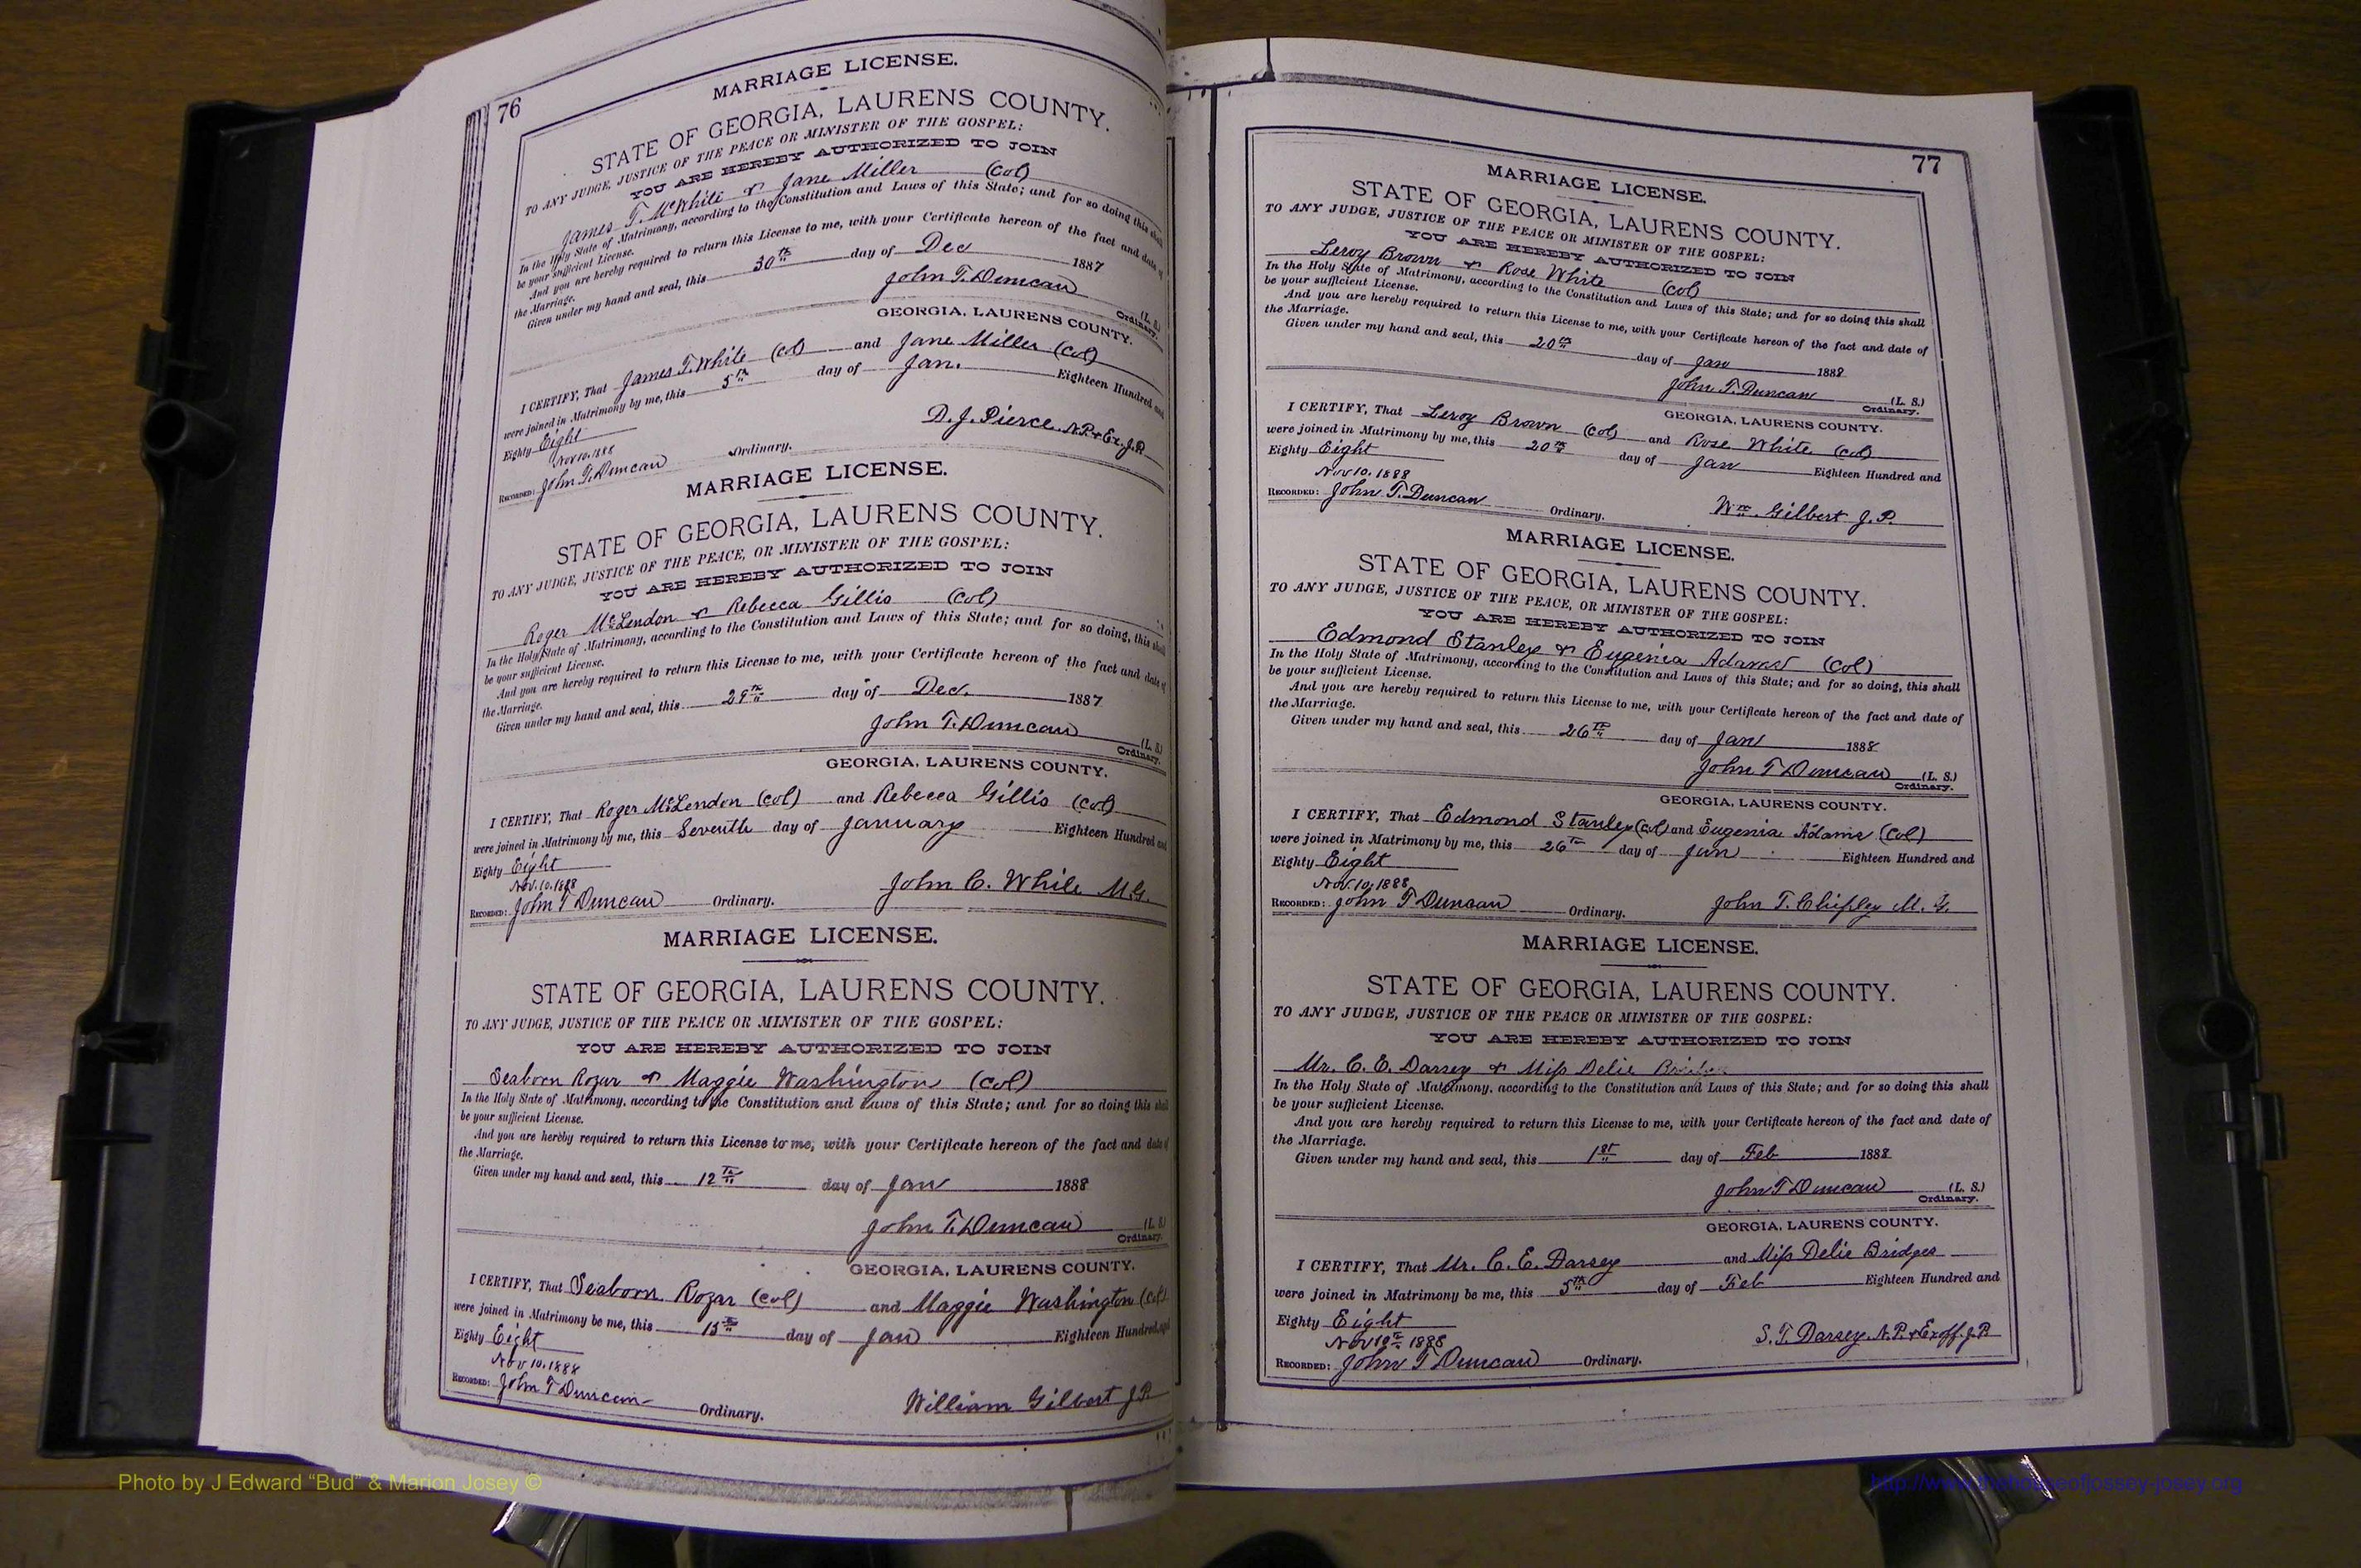 76
MARRIAGE LICENSE.
STATE OF GEORGIA, LAURENS COUNTY.
TO ANY JUDGE, JUSTICE OF THE PEACE OR MINISTER OF THE GOSPEL:
YOU ARE HEREBY AUTHORIZED TO JOIN
James T. McWhite & Jane Miller (Col)
In the Holy State of Matrimony, according to the Constitution and Laws of this State; and for so doing this shall
be your sufficient License.
And you are hereby required to return this License to me, with your Certificate hereon of the fact and date of
the Marriage.
Given under my hand and seal, this 30th day of Dec 1887
John T. Duncan (L. S.)
Ordinary.
GEORGIA, LAURENS COUNTY.
I CERTIFY, That James T. White (Col) and Jane Miller (Col)
were joined in Matrimony by me, this 5th day of Jan. Eighteen Hundred and
Eighty Eight
Nov 10, 1888
D. J. Pierce N.P. & Ex. J.P.
RECORDED: John T. Duncan Ordinary.
MARRIAGE LICENSE.
STATE OF GEORGIA, LAURENS COUNTY.
TO ANY JUDGE, JUSTICE OF THE PEACE, OR MINISTER OF THE GOSPEL:
YOU ARE HEREBY AUTHORIZED TO JOIN
Roger McLendon & Rebecca Gillis (Col)
In the Holy State of Matrimony, according to the Constitution and Laws of this State; and for so doing, this shall
be your sufficient License.
And you are hereby required to return this License to me, with your Certificate hereon of the fact and date of
the Marriage.
Given under my hand and seal, this 29th day of Dec. 1887
John T. Duncan (L. S.)
Ordinary.
GEORGIA, LAURENS COUNTY.
I CERTIFY, That Roger McLendon (Col) and Rebecca Gillis (Col)
were joined in Matrimony by me, this Seventh day of January Eighteen Hundred and
Eighty Eight
Nov. 10, 1888
John C. White M.G.
RECORDED: John T Duncan Ordinary.
MARRIAGE LICENSE.
STATE OF GEORGIA, LAURENS COUNTY.
TO ANY JUDGE, JUSTICE OF THE PEACE OR MINISTER OF THE GOSPEL:
YOU ARE HEREBY AUTHORIZED TO JOIN
Seaborn Rozar & Maggie Washington (Col)
In the Holy State of Matrimony, according to the Constitution and Laws of this State; and for so doing this shall
be your sufficient License.
And you are hereby required to return this License to me, with your Certificate hereon of the fact and date of
the Marriage.
Given under my hand and seal, this 12th day of Jan 1888
John T. Duncan (L. S.)
Ordinary.
GEORGIA, LAURENS COUNTY.
I CERTIFY, That Seaborn Rozar (Col) and Maggie Washington (Col)
were joined in Matrimony be me, this 15th day of Jan Eighteen Hundred and
Eighty Eight
Nov 10, 1888
RECORDED: John T Duncan Ordinary.
William Gilbert J.P.
77
MARRIAGE LICENSE.
STATE OF GEORGIA, LAURENS COUNTY.
TO ANY JUDGE, JUSTICE OF THE PEACE OR MINISTER OF THE GOSPEL:
YOU ARE HEREBY AUTHORIZED TO JOIN
Leroy Brown & Rose White (Col)
In the Holy State of Matrimony, according to the Constitution and Laws of this State; and for so doing this shall
be your sufficient License.
And you are hereby required to return this License to me, with your Certificate hereon of the fact and date of
the Marriage.
Given under my hand and seal, this 20th day of Jan 1888
John T. Duncan (L. S.)
Ordinary.
GEORGIA, LAURENS COUNTY.
I CERTIFY, That Leroy Brown (Col) and Rose White (Col)
were joined in Matrimony by me, this 20th day of Jan Eighteen Hundred and
Eighty Eight
Nov 10, 1888
RECORDED: John T. Duncan Ordinary.
Wm Gilbert J. P.
MARRIAGE LICENSE.
STATE OF GEORGIA, LAURENS COUNTY.
TO ANY JUDGE, JUSTICE OF THE PEACE, OR MINISTER OF THE GOSPEL:
YOU ARE HEREBY AUTHORIZED TO JOIN
Edmond Stanley & Eugenia Adams (Col)
In the Holy State of Matrimony, according to the Constitution and Laws of this State; and for so doing, this shall
be your sufficient License.
And you are hereby required to return this License to me, with your Certificate hereon of the fact and date of
the Marriage.
Given under my hand and seal, this 26th day of Jan 1888
John T Duncan (L. S.)
Ordinary.
GEORGIA, LAURENS COUNTY.
I CERTIFY, That Edmond Stanley (Col) and Eugenia Adams (Col)
were joined in Matrimony by me, this 26th day of Jan Eighteen Hundred and
Eighty Eight
Nov. 10, 1888
RECORDED: John T Duncan Ordinary.
John T. Chipley M. G.
MARRIAGE LICENSE.
STATE OF GEORGIA, LAURENS COUNTY.
TO ANY JUDGE, JUSTICE OF THE PEACE OR MINISTER OF THE GOSPEL:
YOU ARE HEREBY AUTHORIZED TO JOIN
Mr. C. E. Darsey & Miss Delie
In the Holy State of Matrimony, according to the Constitution and Laws of this State; and for so doing this shall
be your sufficient License.
And you are hereby required to return this License to me, with your Certificate hereon of the fact and date of
the Marriage.
Given under my hand and seal, this 1st day of Feb 1888
John T Duncan (L. S.)
Ordinary.
GEORGIA, LAURENS COUNTY.
I CERTIFY, That Mr. C. E. Darsey and Miss Delie Bridges
were joined in Matrimony be me, this 5th day of Feb Eighteen Hundred and
Eighty Eight
Nov 10th 1888
S. T. Darsey N. P. & Exoff. J. P.
RECORDED: John T Duncan Ordinary.
Photo by J Edward “Bud” & Marion Josey ©
http://www.thehouseofjossey-josey.org